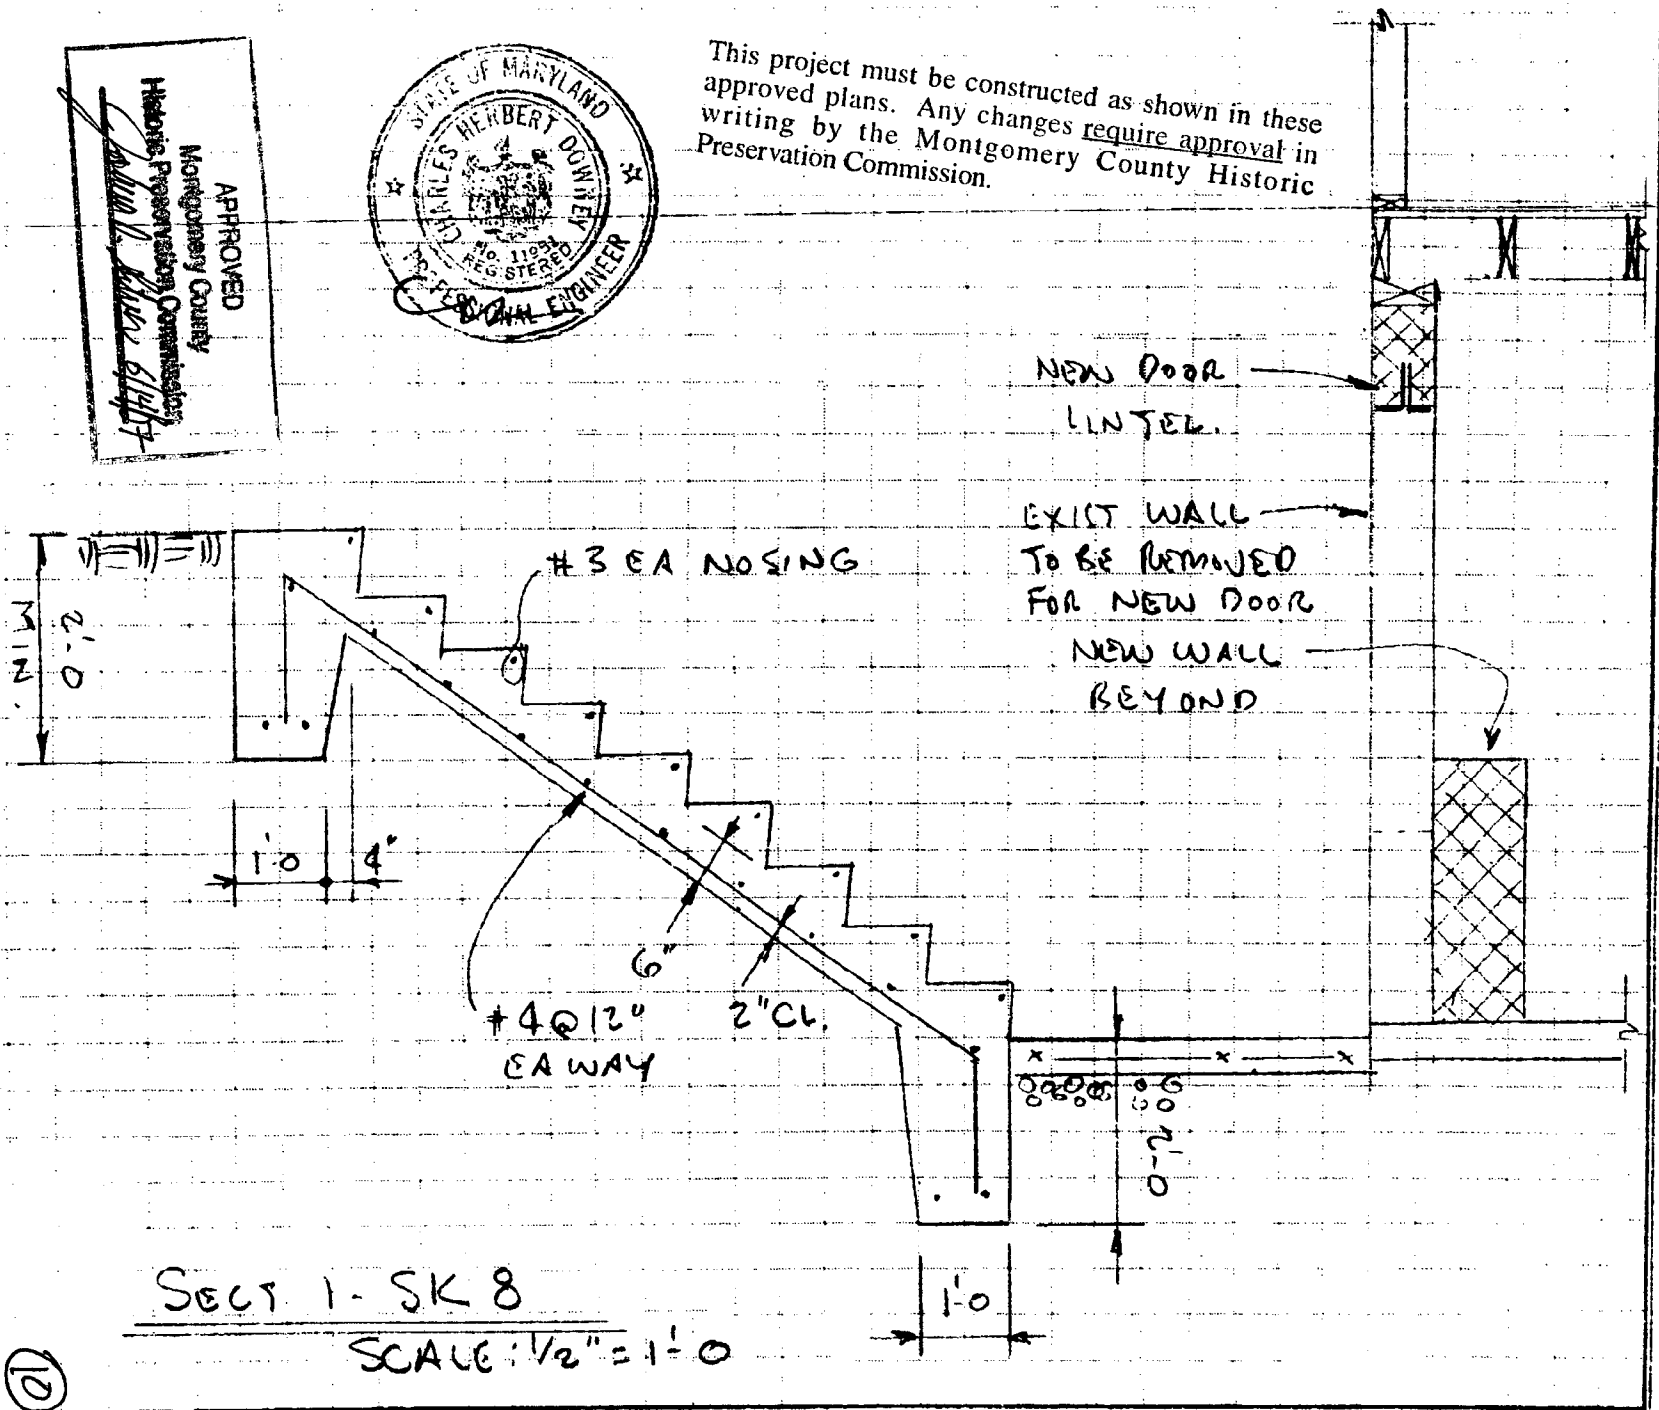 APPROVED
Montgomery County
Historic Preservation Commission
6/4/07
STATE OF MARYLAND
CHARLES HERBERT DOWNEY
No. 11051
REGISTERED
PROFESSIONAL ENGINEER
This project must be constructed as shown in these
approved plans. Any changes require approval in
writing by the Montgomery County Historic
Preservation Commission.
NEW DOOR
LINTEL.
EXIST WALL
TO BE REMOVED
FOR NEW DOOR
NEW WALL
BEYOND
#3 EA NOSING
2'-0
MIN.
1'-0
4"
6"
2"CL.
#4@12"
EA WAY
2'-0
1'-0
SECT 1 - SK 8
SCALE: 1/2" = 1'-0
10